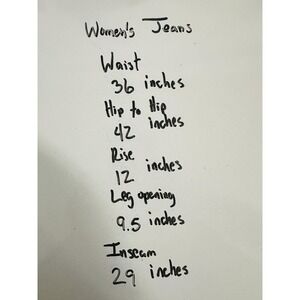 Women's Jeans
Waist
36 inches
Hip to Hip
42 inches
Rise
12 inches
Leg opening
9.5 inches
Inseam
29 inches